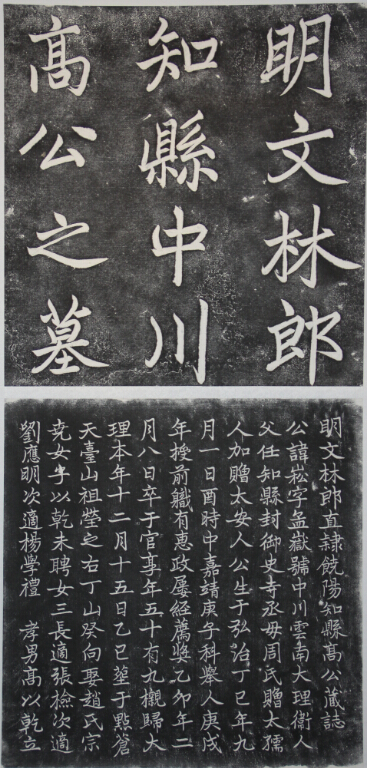 明文林郎
知縣中川
高公之墓
明文林郎直隸饒陽知縣高公藏誌
公諱崧字孟嶽號中川雲南大理衛人
父任知縣封御史寺丞毋周氏贈太孺
人加贈太安人公生于弘治丁巳年九
月一日酉時中嘉靖庚午科舉人庚戌
年授前軄有惠政屢經薦獎乙卯年二
月八日卒于官享年五十有九櫬歸大
理本年十二月十五日乙巳塟于點蒼
天臺山祖塋之右丁山癸向娶趙氏宗
堯女子以乾未聘女三長適張檢次適
劉應明次適楊學禮 孝男高以乾立